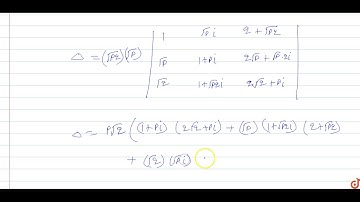 1 √P i 2 + √P2
Δ = (√P2) (√P) √P 1 + P i 2√P + √P · 2i
√2 1 + √P2 i 2√2 + P i
Δ = P√2 ( (1 + P i) (2√2 + P i) + (√P) (1 + √P2 i) (2 + √P2)
+ (√2) (√P i)